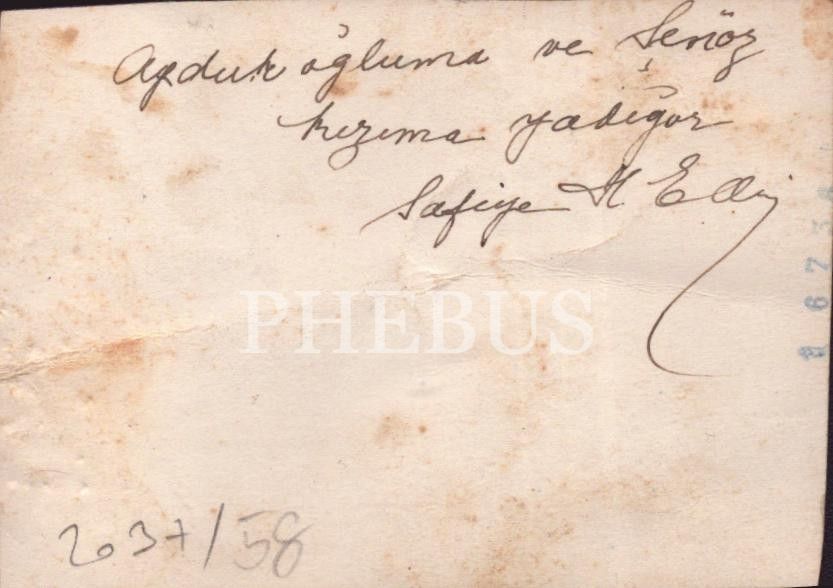 Apduk oğluma ve Şenöz
kızıma yadigâr
Safiye H E
PHEBUS
2037/58